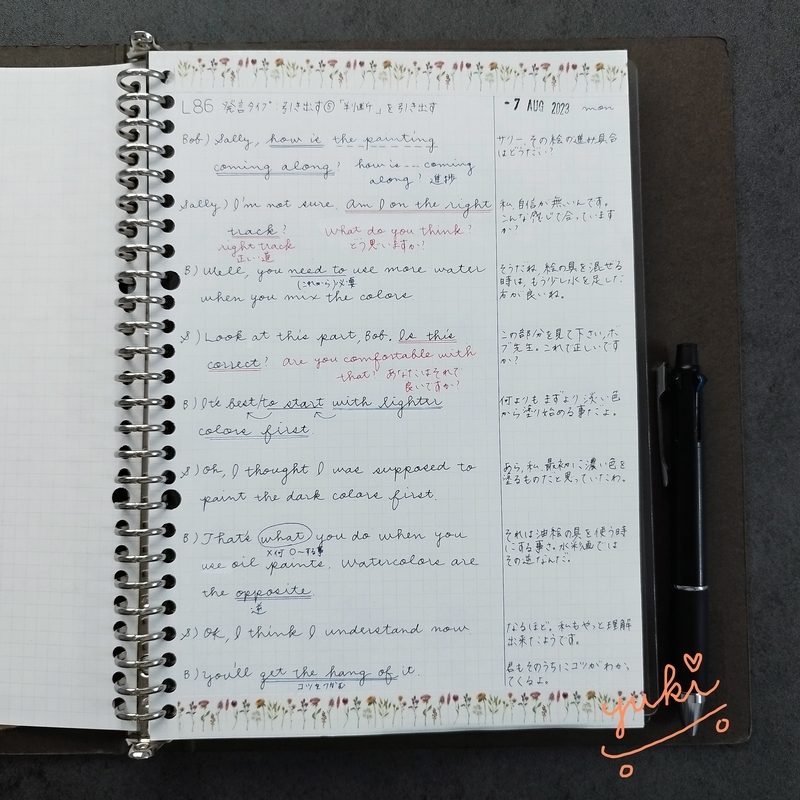 L86 発言タイプ:引き出す⑤「判断」を引き出す
-7 AUG 2023 mon
Bob) Sally, how is the painting
coming along? how is --- coming
along? 進捗
サリー、その絵の進み具合
はどうだい?
Sally) I'm not sure. Am I on the right
track? What do you think?
right track どう思いますか?
正しい道
私、自信が無いんです。
こんな感じで合っています
か?
B) Well, you need to use more water
(これから)必要
when you mix the colors.
そうだね、絵の具を混ぜる
時は、もう少し水を足した
方が良いね。
S) Look at this part, Bob. Is this
correct? Are you comfortable with
that? あなたはそれで
良いですか?
この部分を見て下さい、ボ
ブ先生。これで正しいです
か?
B) It's best to start with lighter
colors first.
何よりもまずより淡い色
から塗り始める事だよ。
S) Oh, I thought I was supposed to
paint the dark colors first.
あら、私、最初に濃い色を
塗るものだと思っていたわ。
B) That's what you do when you
×何 ○〜する事
use oil paints. Watercolors are
the opposite.
逆
それは油絵の具を使う時
にする事さ。水彩画では
その逆なんだ。
S) Ok, I think I understand now
なるほど。私もやっと理解
出来たようです。
B) You'll get the hang of it.
コツをつかむ
君もそのうちにコツがわかっ
てくるよ。
yuki